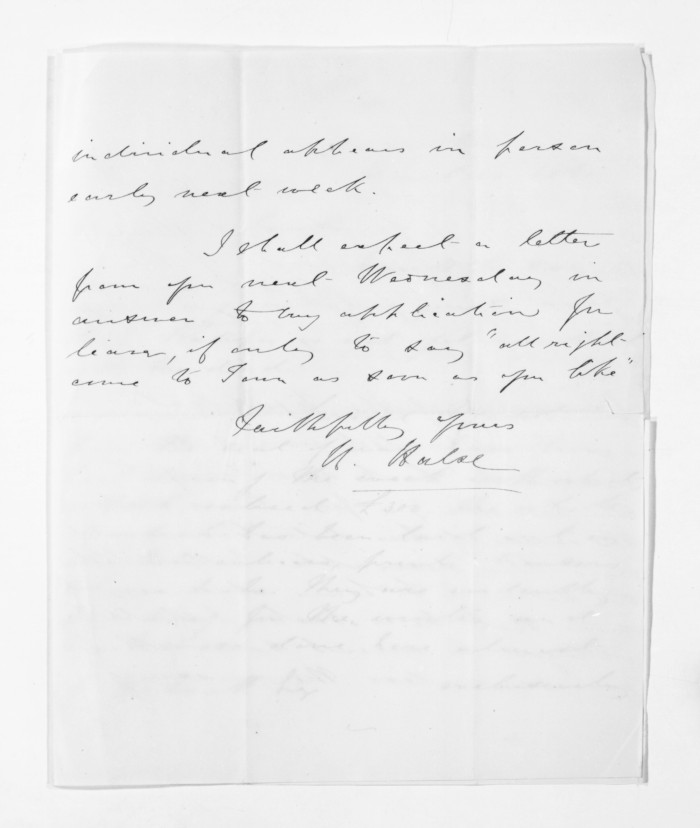 individual appears in person
early next week.
I shall expect a letter
from you next Wednesday in
answer to my application for
leave, if only to say "all right
come to Town as soon as you like"
Faithfully yours
H. Halse